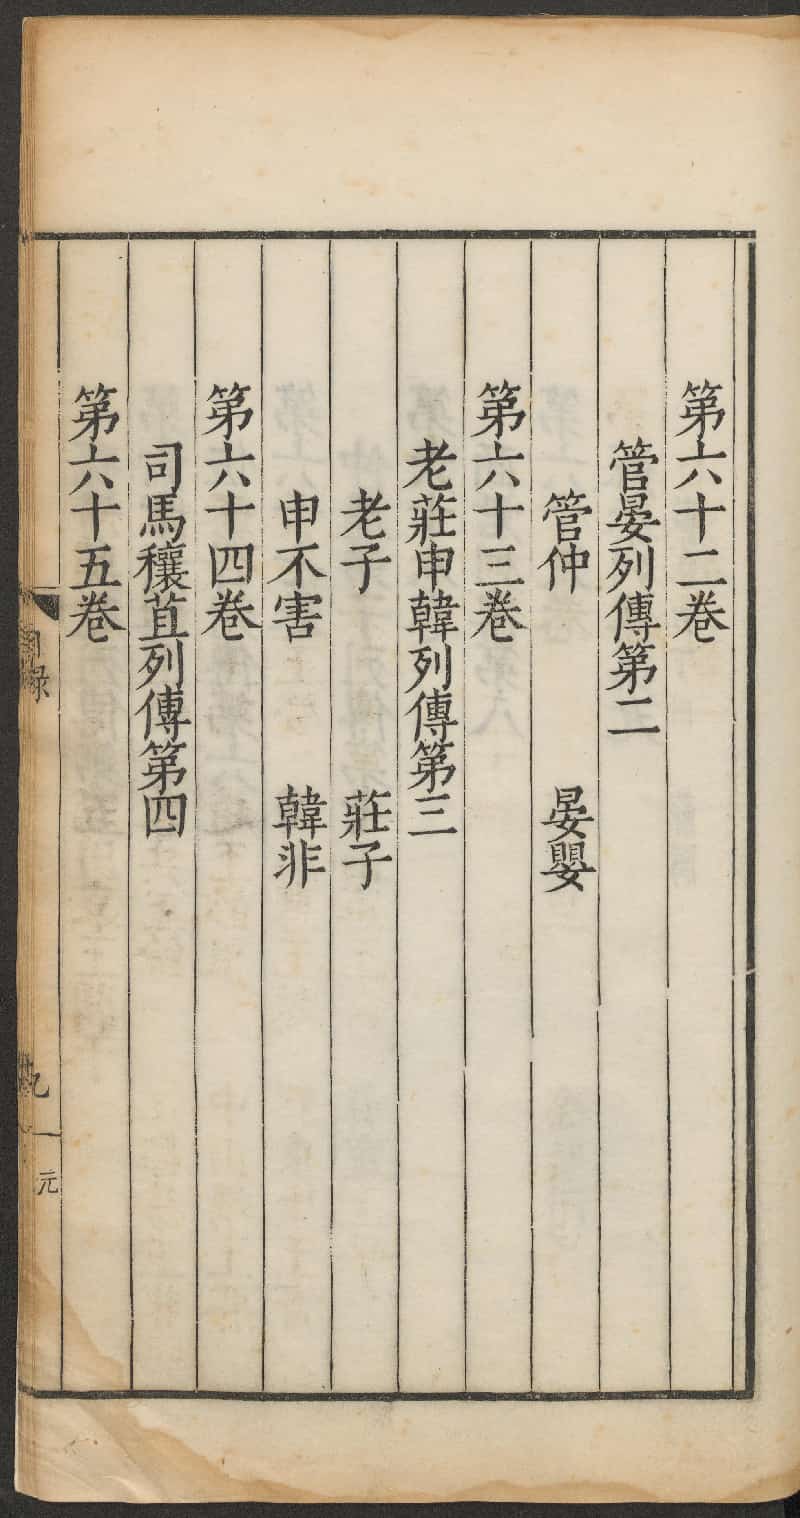 第六十二巻
管晏列傳第二
管仲　晏嬰
第六十三巻
老莊申韓列傳第三
老子　莊子
申不害　韓非
第六十四巻
司馬穰苴列傳第四
第六十五巻
目録
九
元